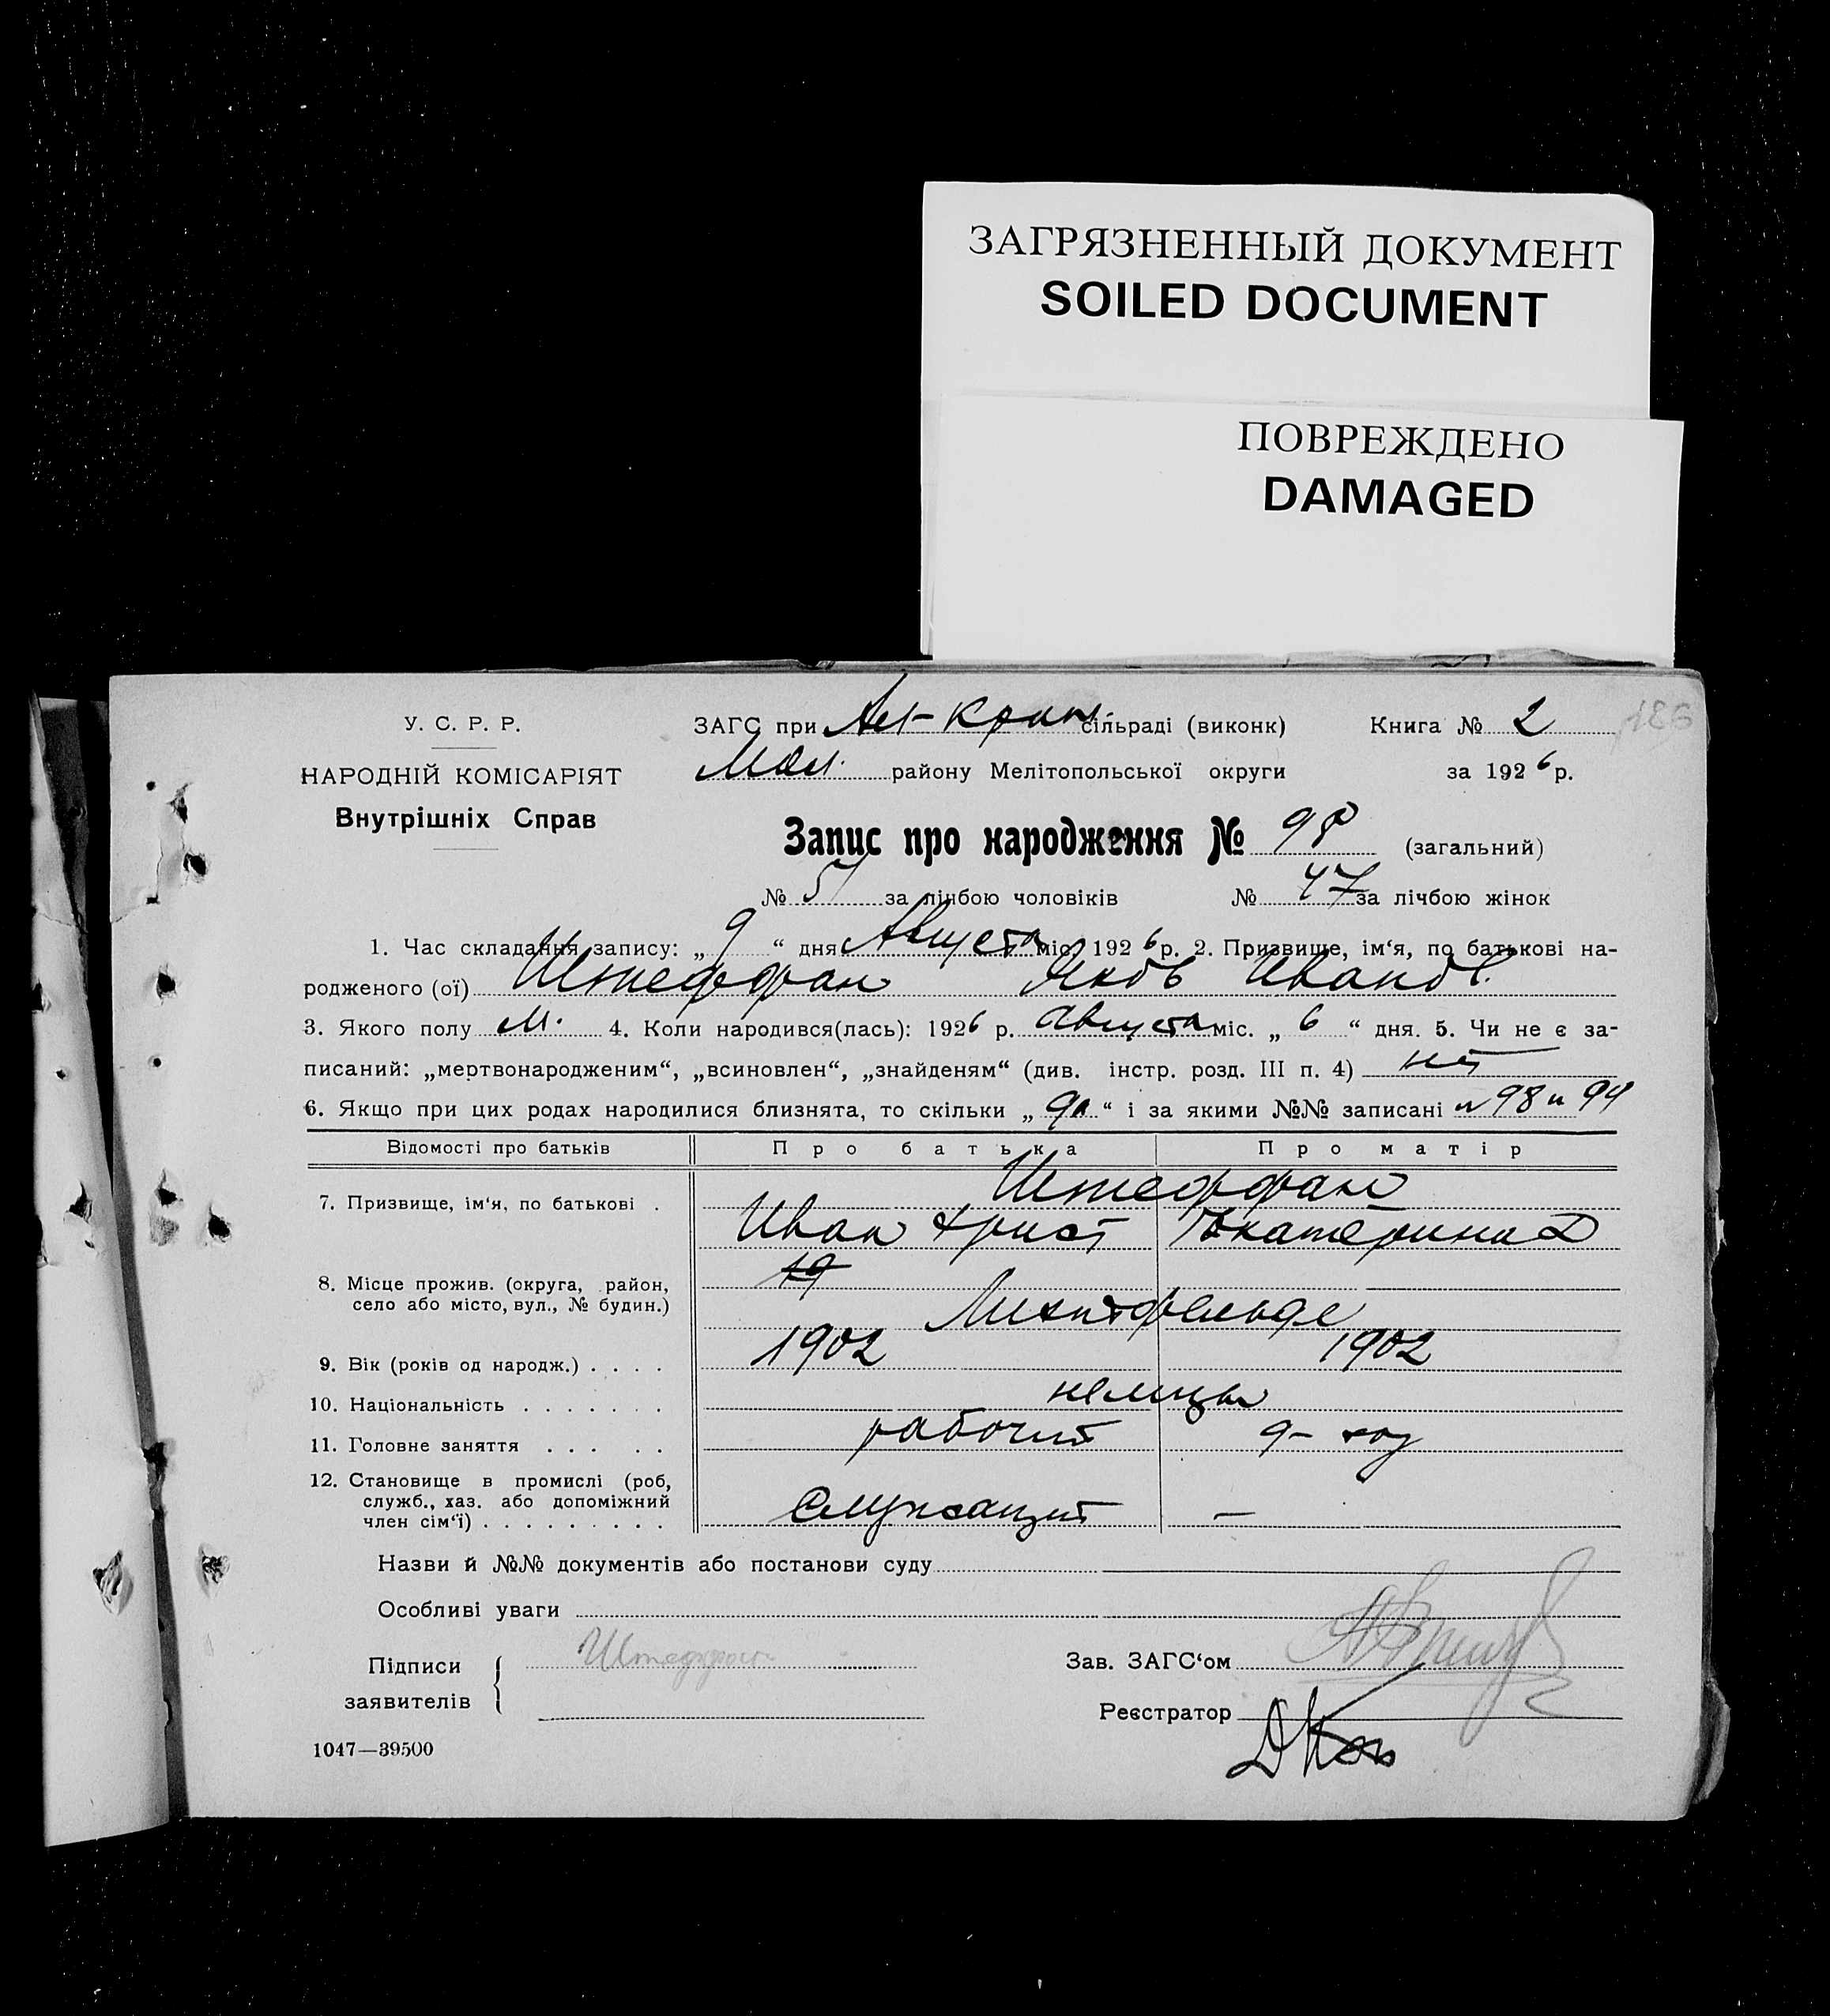 ЗАГРЯЗНЕННЫЙ ДОКУМЕНТ
SOILED DOCUMENT
ПОВРЕЖДЕНО
DAMAGED
186
У. С. Р. Р.
НАРОДНІЙ КОМІСАРІЯТ
Внутрішніх Справ
ЗАГС при сільраді (виконк) Книга № 2
Мол. району Мелітопольської округи за 1926 р.
Запис про народження № 98 (загальний)
№ 51 за лічбою чоловіків № 47 за лічбою жінок
1. Час складання запису: „9“ дня Августа міс. 1926 р. 2. Призвище, ім‘я, по батькові на-
родженого (ої) Штеффан Яков Иванов.
3. Якого полу м. 4. Коли народився(лась): 1926 р. Августа міс. „6“ дня. 5. Чи не є за-
писаний: „мертвонародженим“, „всиновлен“, „знайденям“ (див. інстр. розд. III п. 4) нет
6. Якщо при цих родах народилися близнята, то скільки „ “ і за якими №№ записані 98 и
Відомості про батьків Про батька Про матір
7. Призвище, ім‘я, по батькові . Штеффан
Иван Христ Екатерина Д
8. Місце прожив. (округа, район,
село або місто, вул., № будин.) Лихтфельде
9. Вік (років од народж.) . . . . 1902 1902
10. Національність . . . . . . . немцы
11. Головне заняття . . . . . рабочий
12. Становище в промислі (роб,
служб., хаз. або допоміжний
член сім‘ї) . . . . . . . . . Служащий —
Назви й №№ документів або постанови суду
Особливі уваги
Підписи
заявителів
Штеффан
Зав. ЗАГС‘ом
Реєстратор
1047—39500